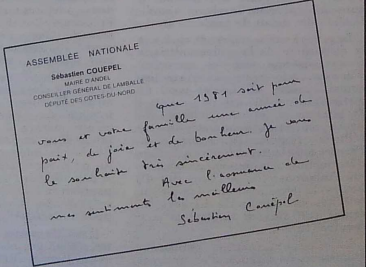 ASSEMBLÉE NATIONALE
Sébastien COUEPEL
MAIRE D'ANDEL
CONSEILLER GÉNÉRAL DE LAMBALLE
DÉPUTÉ DES COTES-DU-NORD
que 1981 soit pour
vous et votre famille une année de
paix, de joie et de bonheur. Je vous
le souhaite très sincèrement.
Avec l'assurance de
mes sentiments les meilleurs
Sébastien Couëpel